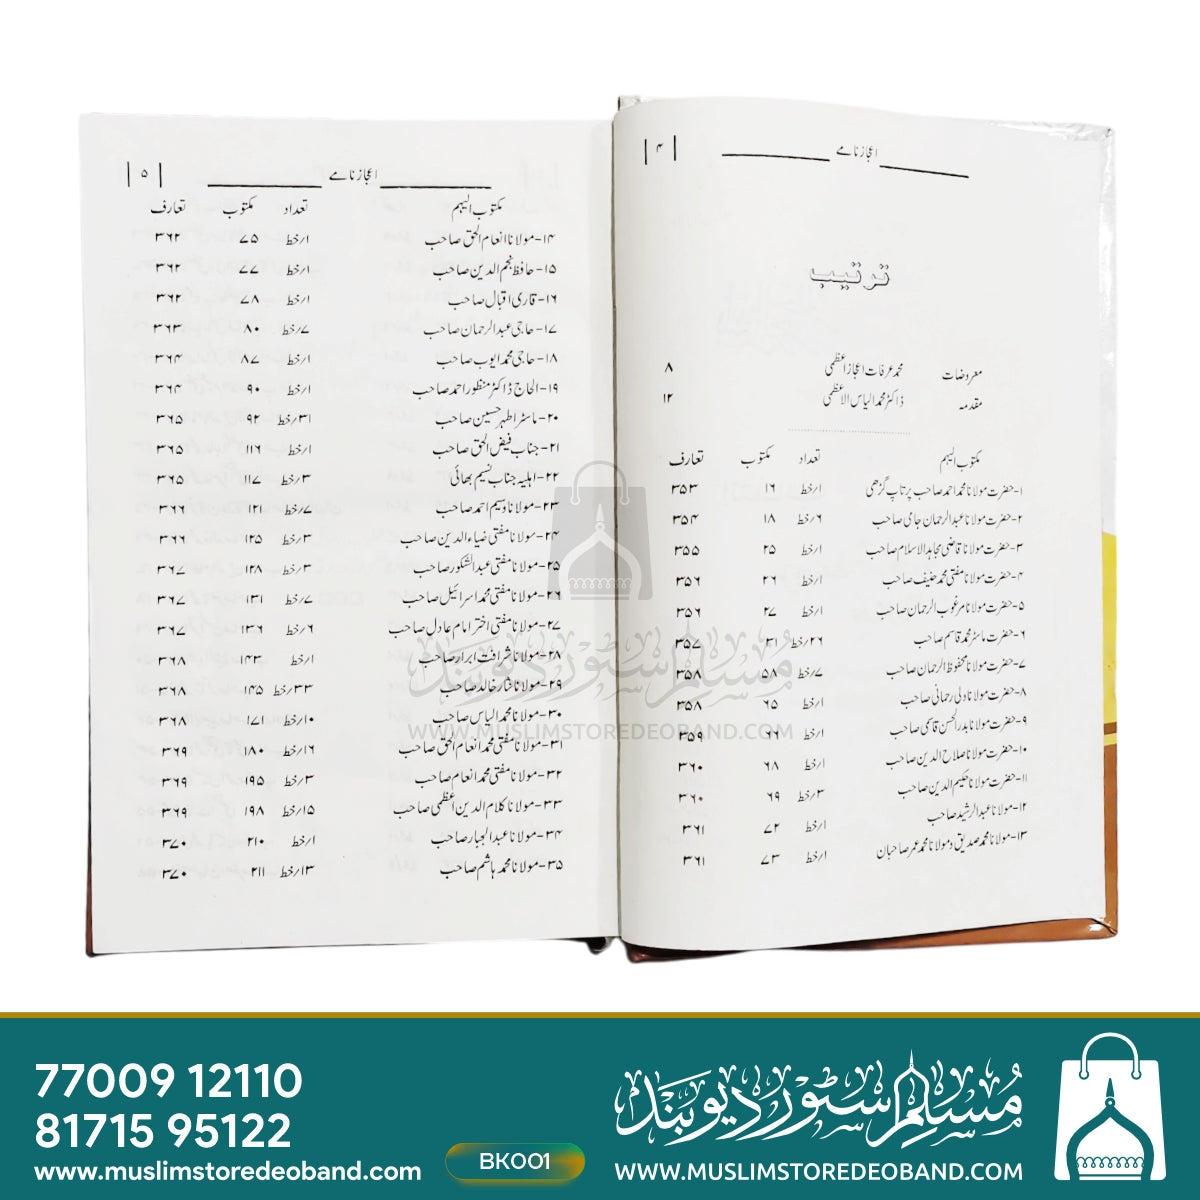 | ۴ | اعجاز نامے
ترتیب
معروضات محمد عرفات اعجاز اعظمی ۸
مقدمہ ڈاکٹر محمد الیاس الاعظمی ۱۲
مکتوب الیہم تعداد مکتوب تعارف
۱- حضرت مولانا محمد احمد صاحب پرتاپ گڑھی ۱/خط ۱۶ ۳۵۳
۲- حضرت مولانا عبدالرحمان جامی صاحب ۶/خط ۱۸ ۳۵۴
۳- حضرت مولانا قاضی مجاہد الاسلام صاحب ۱/خط ۲۵ ۳۵۵
۴- حضرت مولانا مفتی محمد حنیف صاحب ۱/خط ۲۶ ۳۵۶
۵- حضرت مولانا مرغوب الرحمان صاحب ۱/خط ۲۷ ۳۵۶
۶- حضرت ماسٹر محمد قاسم صاحب ۲۶/خط ۳۱ ۳۵۷
۷- حضرت مولانا محفوظ الرحمان صاحب ۷/خط ۵۸ ۳۵۸
۸- حضرت مولانا ولی رحمانی صاحب ۱/خط ۶۵ ۳۵۸
۹- حضرت مولانا بدر الحسن قاسمی صاحب ۱/خط ۶۶ ۳۵۹
۱۰- حضرت مولانا صلاح الدین صاحب ۱/خط ۶۸ ۳۶۰
۱۱- حضرت مولانا حکیم الدین صاحب ۳/خط ۶۹ ۳۶۰
۱۲- مولانا عبد الرشید صاحب ۱/خط ۷۲ ۳۶۱
۱۳- مولانا محمد صدیق و مولانا محمد عمر صاحبان ۱/خط ۷۳ ۳۶۱
| ۵ | اعجاز نامے
مکتوب الیہم تعداد مکتوب تعارف
۱۴- مولانا انعام الحق صاحب ۱/خط ۷۵ ۳۶۲
۱۵- حافظ نجم الدین صاحب ۱/خط ۷۷ ۳۶۲
۱۶- قاری اقبال صاحب ۱/خط ۷۸ ۳۶۲
۱۷- حاجی عبدالرحمان صاحب ۷/خط ۸۰ ۳۶۳
۱۸- حاجی محمد ایوب صاحب ۱/خط ۸۷ ۳۶۴
۱۹- الحاج ڈاکٹر منظور احمد صاحب ۱/خط ۹۰ ۳۶۴
۲۰- ماسٹر اطہر حسین صاحب ۳۱/خط ۹۲ ۳۶۵
۲۱- جناب فیض الحق صاحب ۱/خط ۱۱۶ ۳۶۵
۲۲- اہلیہ جناب نسیم بھائی ۳/خط ۱۱۷ ۳۶۵
۲۳- مولانا وسیم احمد صاحب ۷/خط ۱۲۱ ۳۶۶
۲۴- مولانا مفتی ضیاء الدین صاحب ۳/خط ۱۲۵ ۳۶۶
۲۵- مولانا مفتی عبدالشکور صاحب ۳/خط ۱۲۸ ۳۶۷
۲۶- مولانا مفتی محمد اسرائیل صاحب ۷/خط ۱۳۱ ۳۶۷
۲۷- مولانا مفتی اختر امام عادل صاحب ۶/خط ۱۳۶ ۳۶۷
۲۸- مولانا شرافت ابرار صاحب ۱/خط ۱۴۳ ۳۶۸
۲۹- مولانا نثار خالد صاحب ۳۳/خط ۱۴۵ ۳۶۸
۳۰- مولانا محمد الیاس صاحب ۱۰/خط ۱۷۱ ۳۶۸
۳۱- مولانا مفتی محمد انعام الحق صاحب ۱۶/خط ۱۸۰ ۳۶۹
۳۲- مولانا مفتی محمد انعام صاحب ۳/خط ۱۹۵ ۳۶۹
۳۳- مولانا کلام الدین اعظمی صاحب ۱۵/خط ۱۹۸ ۳۶۹
۳۴- مولانا عبدالجبار صاحب ۱/خط ۲۱۰ ۳۷۰
۳۵- مولانا محمد ہاشم صاحب ۱۳/خط ۲۱۱ ۳۷۰
مسلم سٹور دیوبند
WWW.MUSLIMSTOREDEOBAND.COM
77009 12110
81715 95122
www.muslimstoredeoband.com
BK001
مسلم سٹور دیوبند
WWW.MUSLIMSTOREDEOBAND.COM